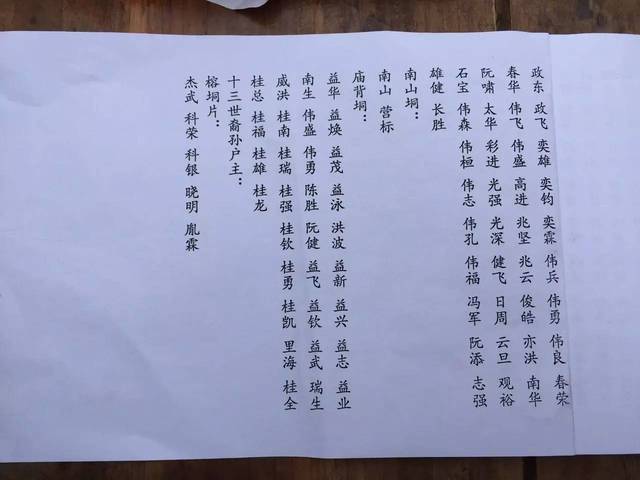 政东 政飞 奕雄 奕钧 奕霖 伟兵 伟勇 伟良 春荣
春华 伟飞 伟盛 高进 兆坚 兆云 俊皓 亦洪 南华
阮啸 太华 彩进 光强 光深 健飞 日周 云旦 观裕
石宝 伟森 伟桓 伟志 伟孔 伟福 冯军 阮添 志强
雄健 长胜
南山垌：
南山 营标
庙背垌：
益华 益焕 益茂 益泳 洪波 益新 益兴 益志 益业
南生 伟盛 伟勇 陈胜 阮健 益飞 益钦 益武 瑞生
威洪 桂南 桂瑞 桂强 桂钦 桂勇 桂凯 里海 桂全
桂总 桂福 桂雄 桂龙
十三世裔孙户主：
榕垌片：
杰武 科荣 科银 晓明 胤霖